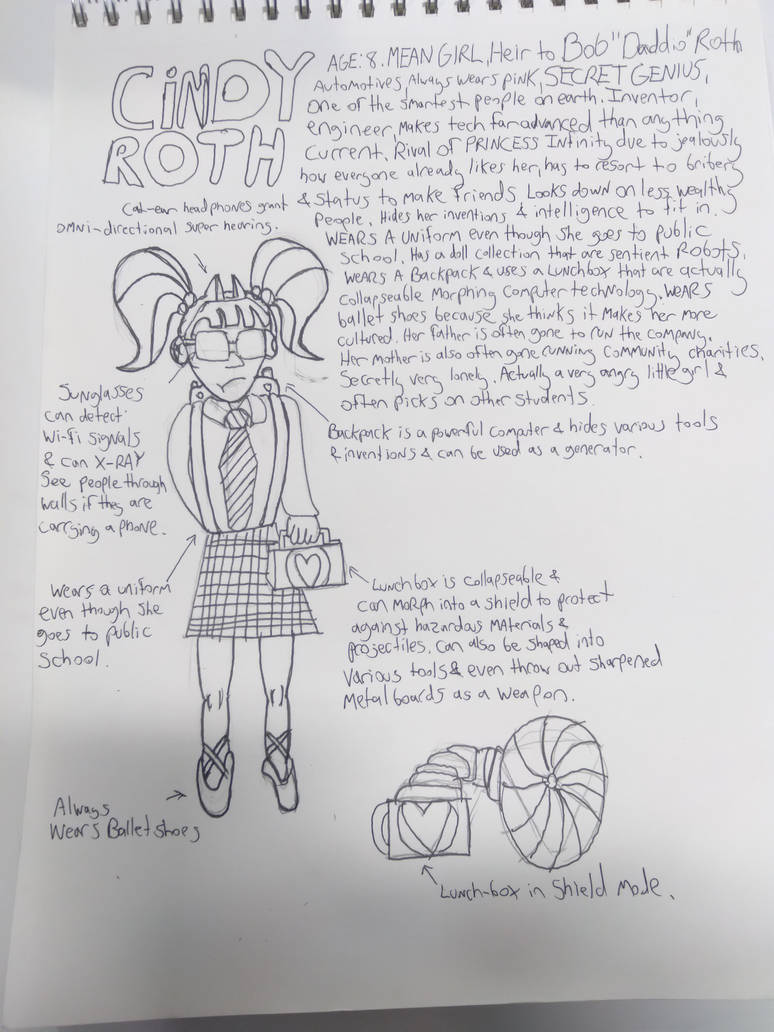 CINDY
ROTH
AGE: 8. MEAN GIRL, Heir to Bob "Daddio" Roth
Automotives, Always wears pink, SECRET GENIUS,
One of the smartest people on earth. Inventor,
engineer, Makes tech far advanced than anything
Current. Rival of PRINCESS Infinity due to jealously
how everyone already likes her, has to resort to bribery
& Status to make friends. Looks down on less wealthy
People. Hides her inventions & intelligence to fit in.
WEARS A UNIFORM even though She goes to public
School. Has a doll collection that are sentient RObOTS.
WEARS A BACKPACK & uses a LUNCHbOX that are actually
Collapseable Morphing Computer technology. WEARS
ballet shoes because she thinks it Makes her more
cultured. Her father is often gone to run the company.
Her mother is also often gone running Community charities.
Secretly very lonely. Actually a very angry little girl &
often picks on other Students.
Cat-ear headphones grant
OMNi-directional super hearing.
Sunglasses
can detect
Wi-fi signals
& can X-RAY
See people through
walls if they are
carrying a phone.
Backpack is a powerful computer & hides various tools
& inventions & can be used as a generator.
Wears a uniform
even though she
goes to public
School.
Lunchbox is collapseable &
can Morph into a shield to protect
against hazardous MAterials &
projectiles. Can also be shaped into
Various tools & even throw out sharpened
Metal boards as a weapon.
Always
Wears Ballet shoes
Lunch-box in Shield Mode.